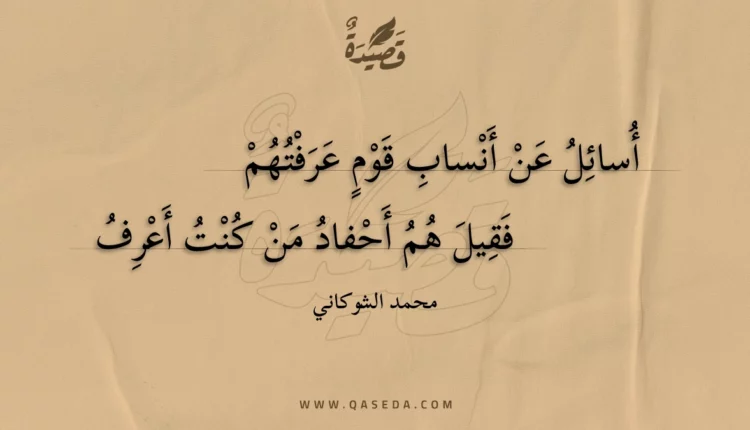 قَصِيْدَةٌ
أُسائِلُ عَنْ أَنْسابِ قَوْمٍ عَرَفْتُهُمْ
فَقِيلَ هُمُ أَحْفادُ مَنْ كُنْتُ أَعْرِفُ
محمد الشوكاني
WWW.QASEDA.COM